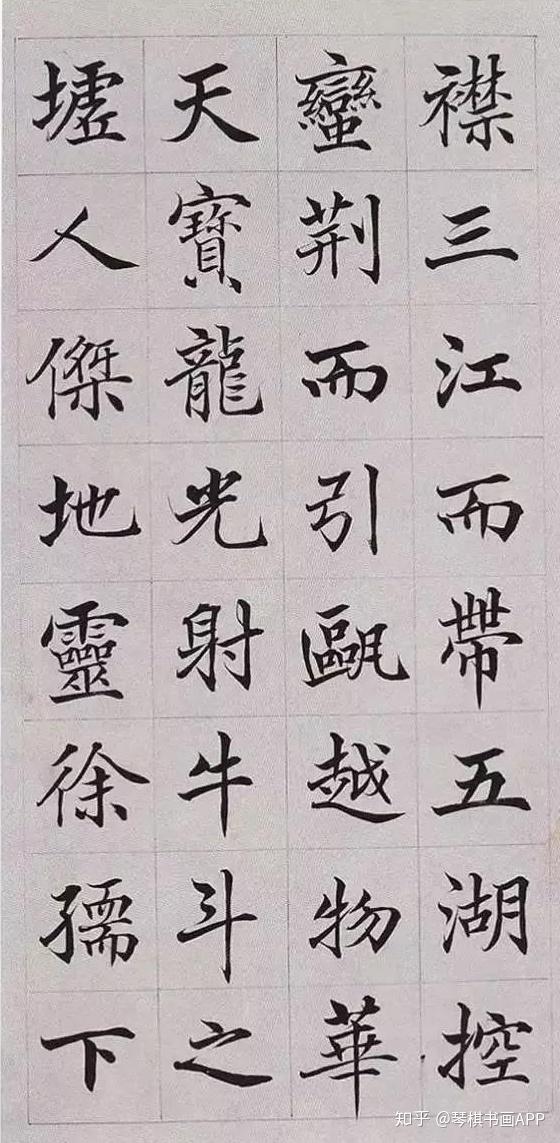 襟三江而帶五湖控
蠻荆而引甌越物華
天寶龍光射牛斗之
墟人傑地靈徐孺下
知乎 @琴棋书画APP